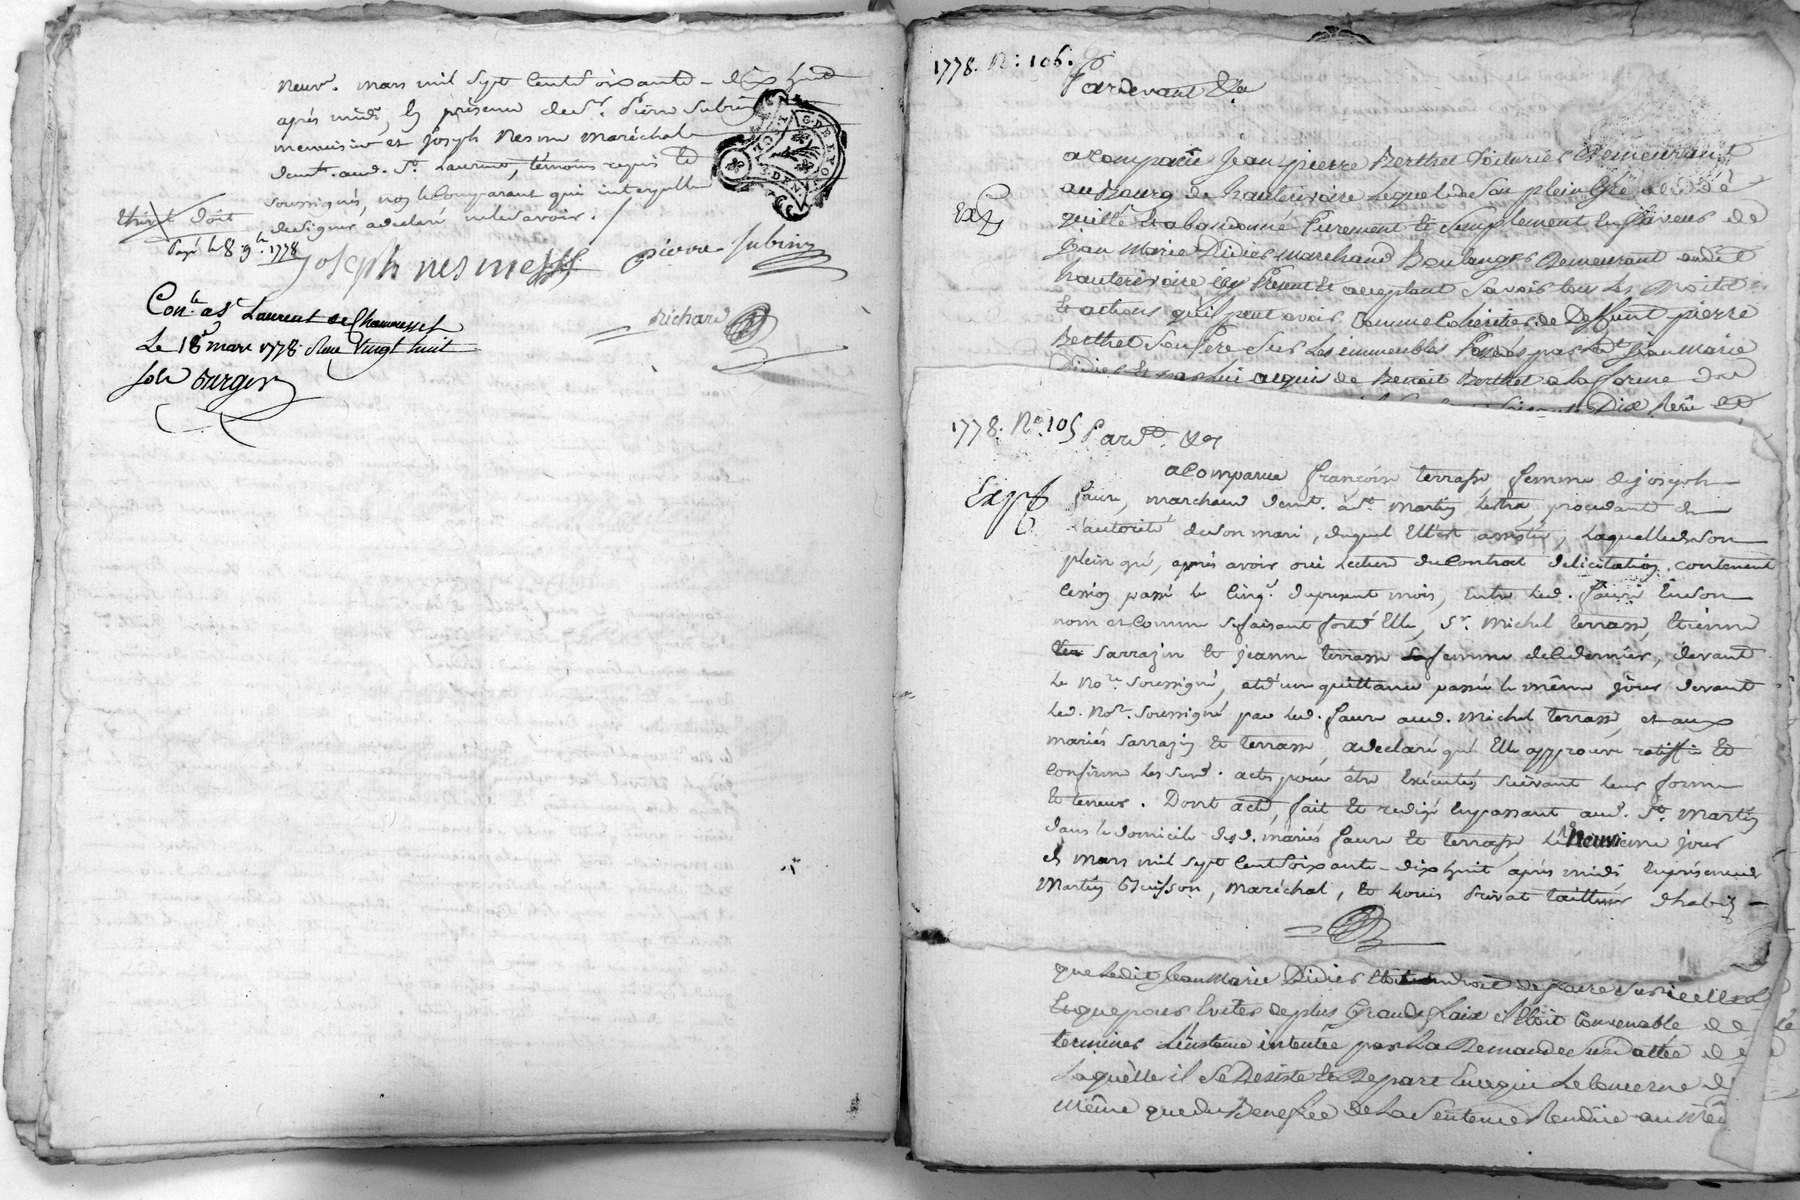 neuf. mars mil sept cent soixante-dix huit
après midi, en présence de sr. Pierre Subrin
menuisier et Joseph Nesme maréchal
demt. aud. St. Laurent, témoins requis et
soussignés, non le comparant qui interpellé
de signer a déclaré ne le savoir.
doit
payé le 8 9bre. 1778
joseph nesme pierre subrin
Richard
Conle. a St Laurent de Chamousset
Le 18 mars 1778 Reçu vingt huit
sols
G. DE LYON
1778. N: 106.
Pardevant &a
a comparu Jean pierre Berthet voiturier Demeurant
au Bourg de hauterivoire Lequel de son plein Gré a cédé
Exp
quitté et abandonné Purement et simplement en faveur de
Jean Marie Didier marchand Boulanger Demeurant audit
hauterivoire icy Present et acceptant savoir tous les Droits
et actions qu'il peut avoir comme cohéritier de Deffunt pierre
Berthet son Père sur les immeubles par Jean Marie
Didier et par lui acquis de Benoit Berthet a la forme du
Dix
1778. No. 105 Pardt. &a
a comparue françoise terrasse femme de joseph
Exp
faure, marchand demt. à St. Martin Lestra, procédant de
l'autorité de son mari, duquel Elle est assistée, laquelle de son
plein gré, après avoir oui lecture du contrat de licitation contenant
cession passé le cinq. du present mois, entre led. faure En son
nom et comme se faisant fort d'Elle, Sr. Michel terrasse, Etienne
ter Sarrazin et jeanne terrasse sa femme de ce dernier, devant
le Nore. soussigné, et d'une quittance passée le même jour devant
led. Nore. soussigné par led. faure aud. Michel terrasse, et aux
mariés Sarrazin et terrasse, a déclaré qu'Elle approuve ratiffie et
confirme les susd. actes pour être Exécutés suivant leur forme
et teneur. Dont acte, fait et redigé en passant aud. St. Martin
dans le domicile desd. mariés faure et terrasse, le Neuvieme jour
de mars mil sept cent soixante-dix huit après midi En présence de
Martin Buisson, Maréchal, et Louis Privat tailleur d'habits
que Ledit Jean Marie Didier Etoit En droit de faire sur icelle
Et que pour Eviter de plus Grands fraix il Etoit Convenable de
terminer L'instance intentée par La Demande susdattée de
Laquelle il se Desiste et Depart En ce qui Le Concerne De
Même que du Benefice de La Sentence Rendüe au